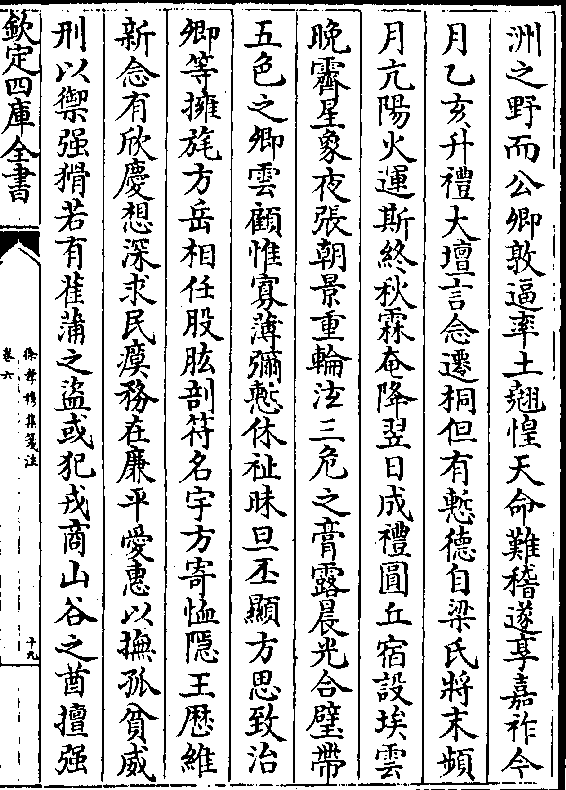 洲之野而公卿敦逼率土翹惶天命難稽遂享嘉祚今
月乙亥升禮大壇言念遷桐但有慙德自梁氏將末頻
月亢陽火運斯終秋霖奄降翌日成禮圓丘宿設埃雲
晚霽星象夜張朝景重輪泫三危之膏露晨光合璧帶
五色之卿雲顧惟寡薄彌慙休祉昧旦丕顯方思致治
卿等擁旄方岳相任股肱剖符名宇方寄恤隠王厯維
新念有欣慶想深求民瘼務在廉平愛惠以撫孤貧威
刑以禦强猾若有萑蒲之盜或犯戎商山谷之酋擅强
欽定四庫全書
徐孝穆集箋注
卷六
十九